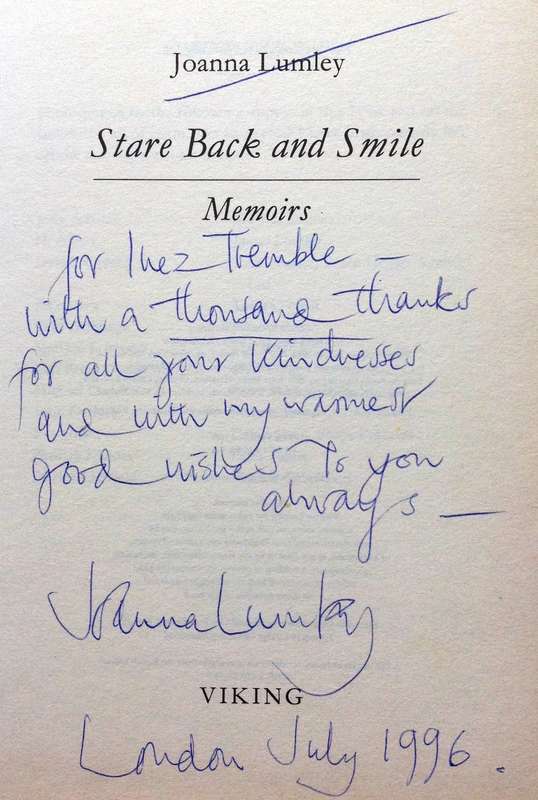 Joanna Lumley
Stare Back and Smile
Memoirs
for Inez Tremble –
with a thousand thanks
for all your kindnesses
and with my warmest
good wishes to you
always —
Joanna Lumley
VIKING
London July 1996.